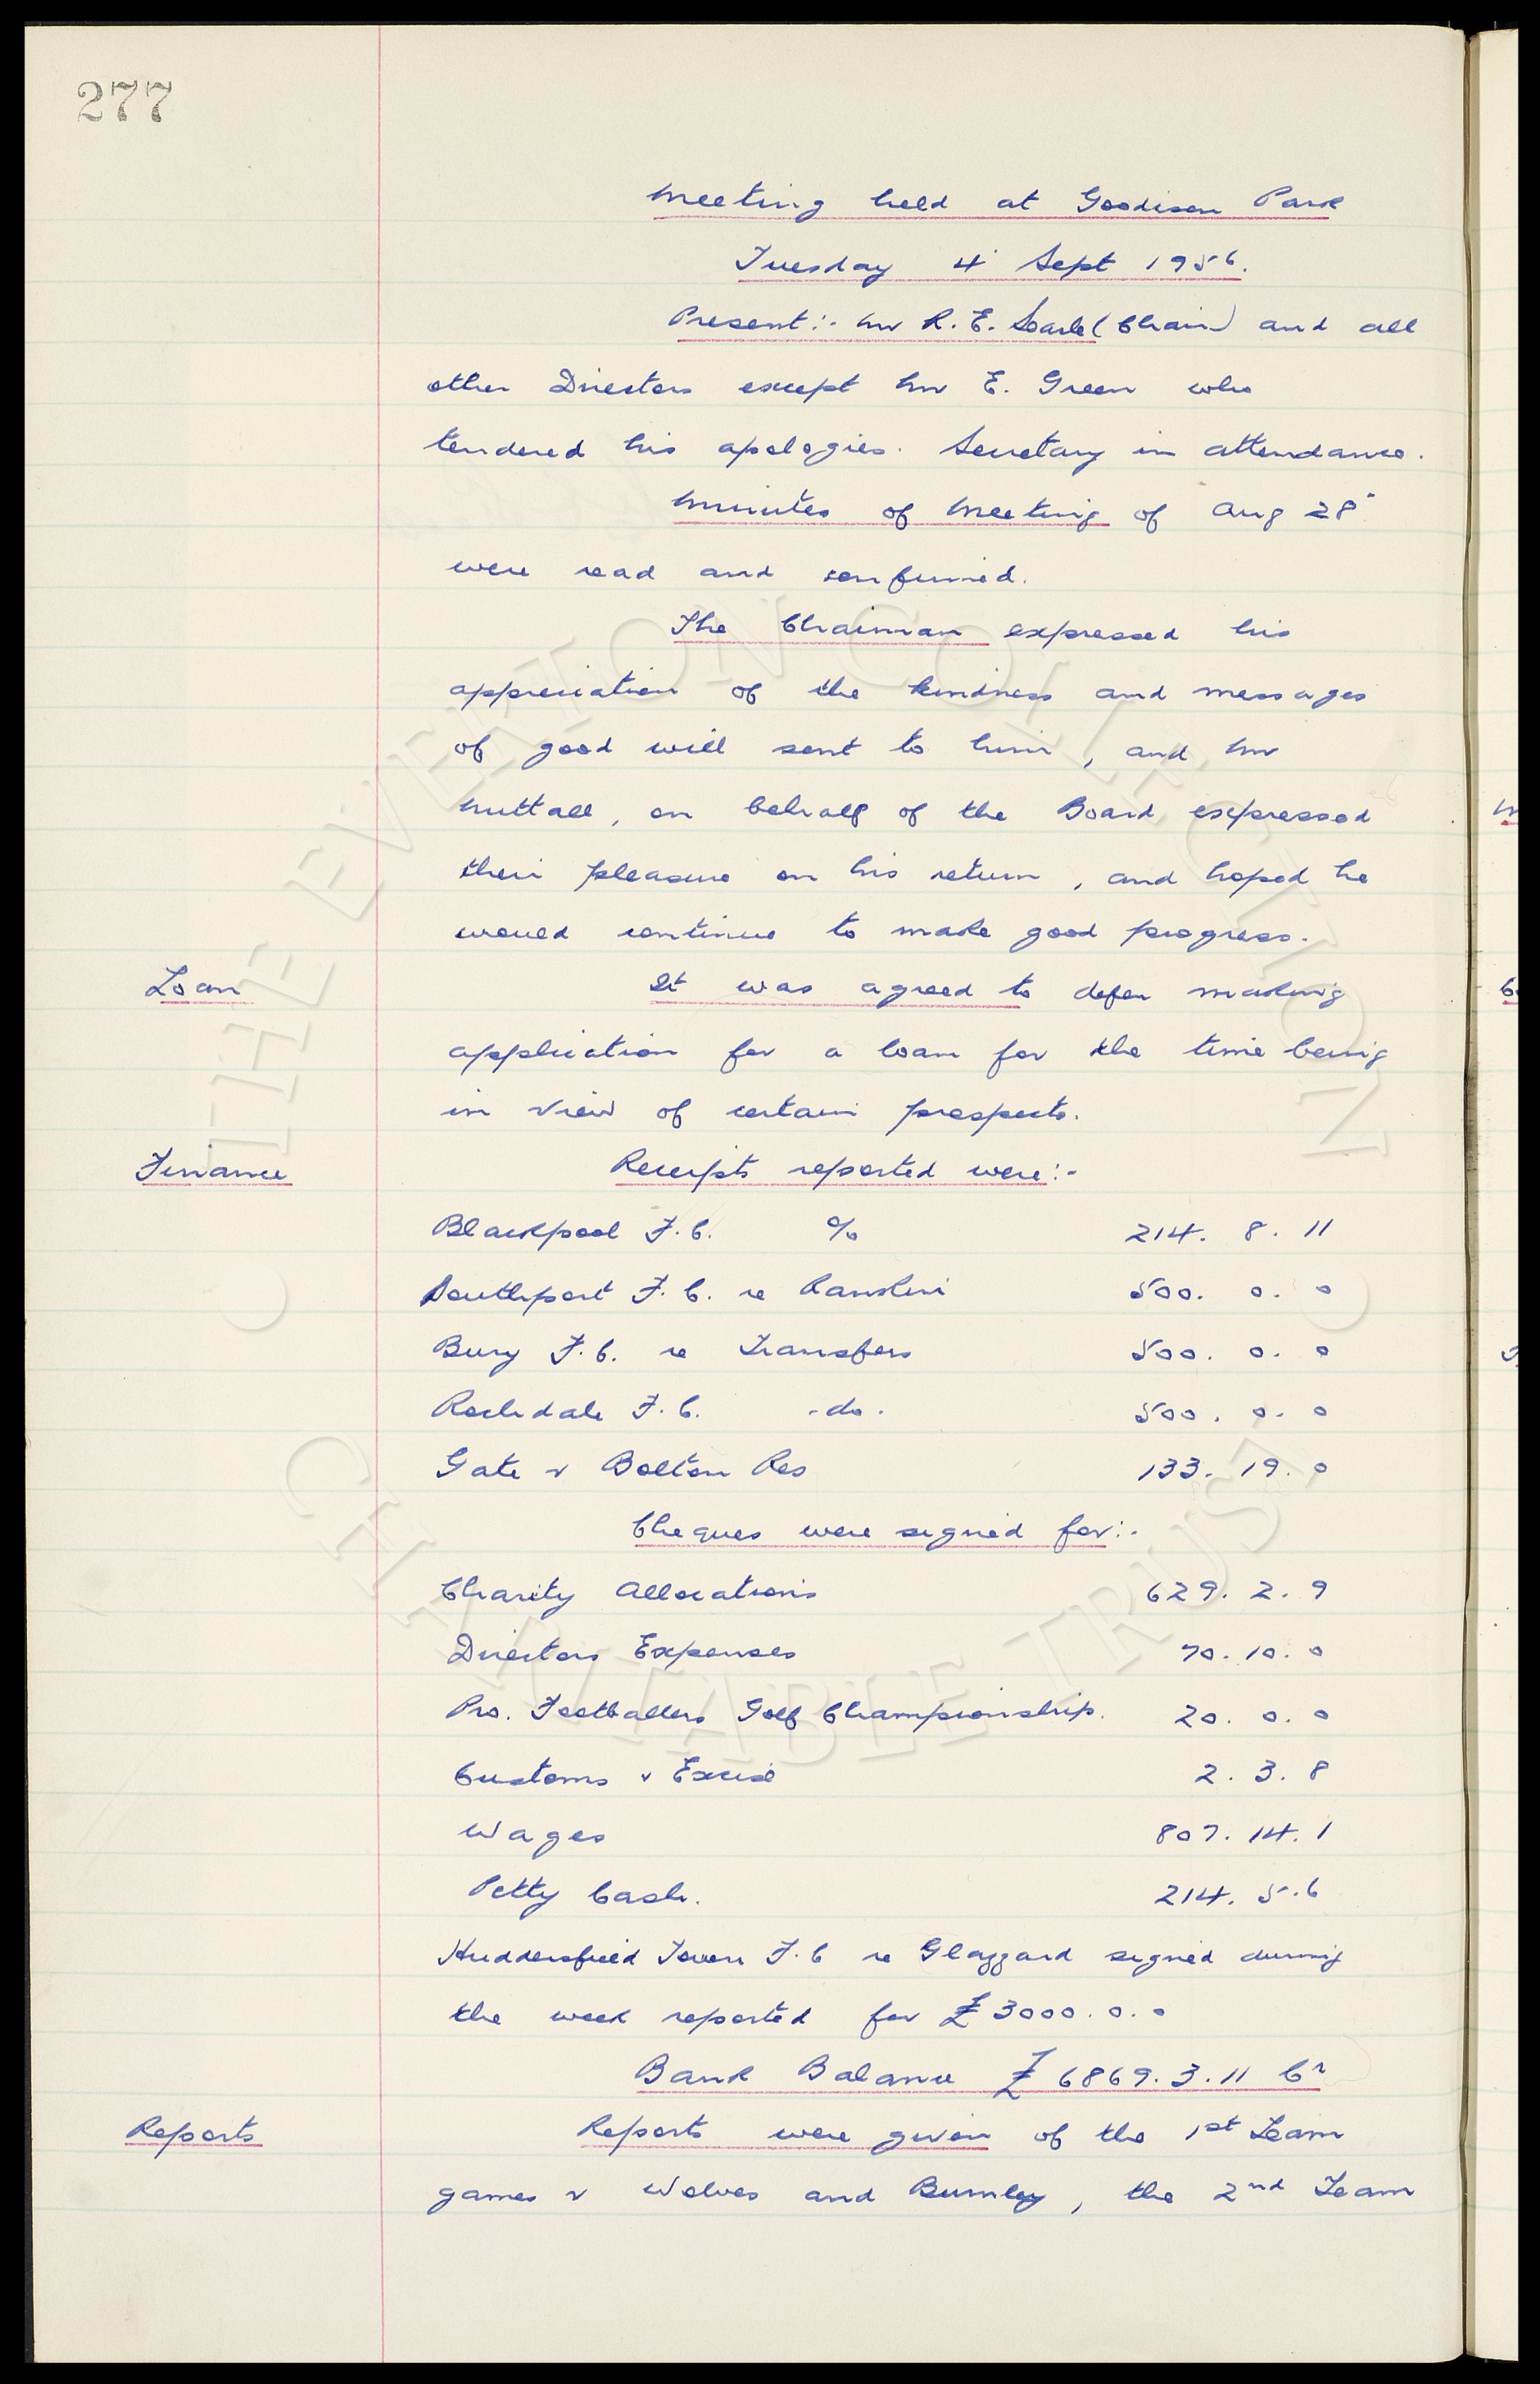 277
Meeting held at Goodison Park
Tuesday 4' Sept 1956.
Present:- Mr R. E. Searle (Chair) and all
other Directors except Mr E. Green who
tendered his apologies. Secretary in attendance.
Minutes of Meeting of Aug 28"
were read and confirmed.
The Chairman expressed his
appreciation of the kindness and messages
of good will sent to him, and Mr
Nuttall, on behalf of the Board expressed
their pleasure on his return, and hoped he
would continue to make good progress.
Loan
It was agreed to defer making
application for a loan for the time being
in view of certain prospects.
Finance
Receipts reported were:-
Blackpool F.C. % 214. 8. 11
Southport F.C. re Rankin 500. 0. 0
Bury F.C. re Transfers 500. 0. 0
Rochdale F.C. -do. 500. 0. 0
Gate v Bolton Res 133. 19. 0
Cheques were signed for:-
Charity Allocations 629. 2. 9
Directors Expenses 70. 10. 0
Pro. Footballers Golf Championship. 20. 0. 0
Customs & Excise 2. 3. 8
Wages 807. 14. 1
Petty Cash. 214. 5. 6
Huddersfield Town F.C re Glazzard signed during
the week reported for £3000. 0. 0
Bank Balance £6869. 3. 11 Cr
Reports
Reports were given of the 1st Team
games v Wolves and Burnley, the 2nd Team
THE EVERTON COLLECTION
CHARITABLE TRUST